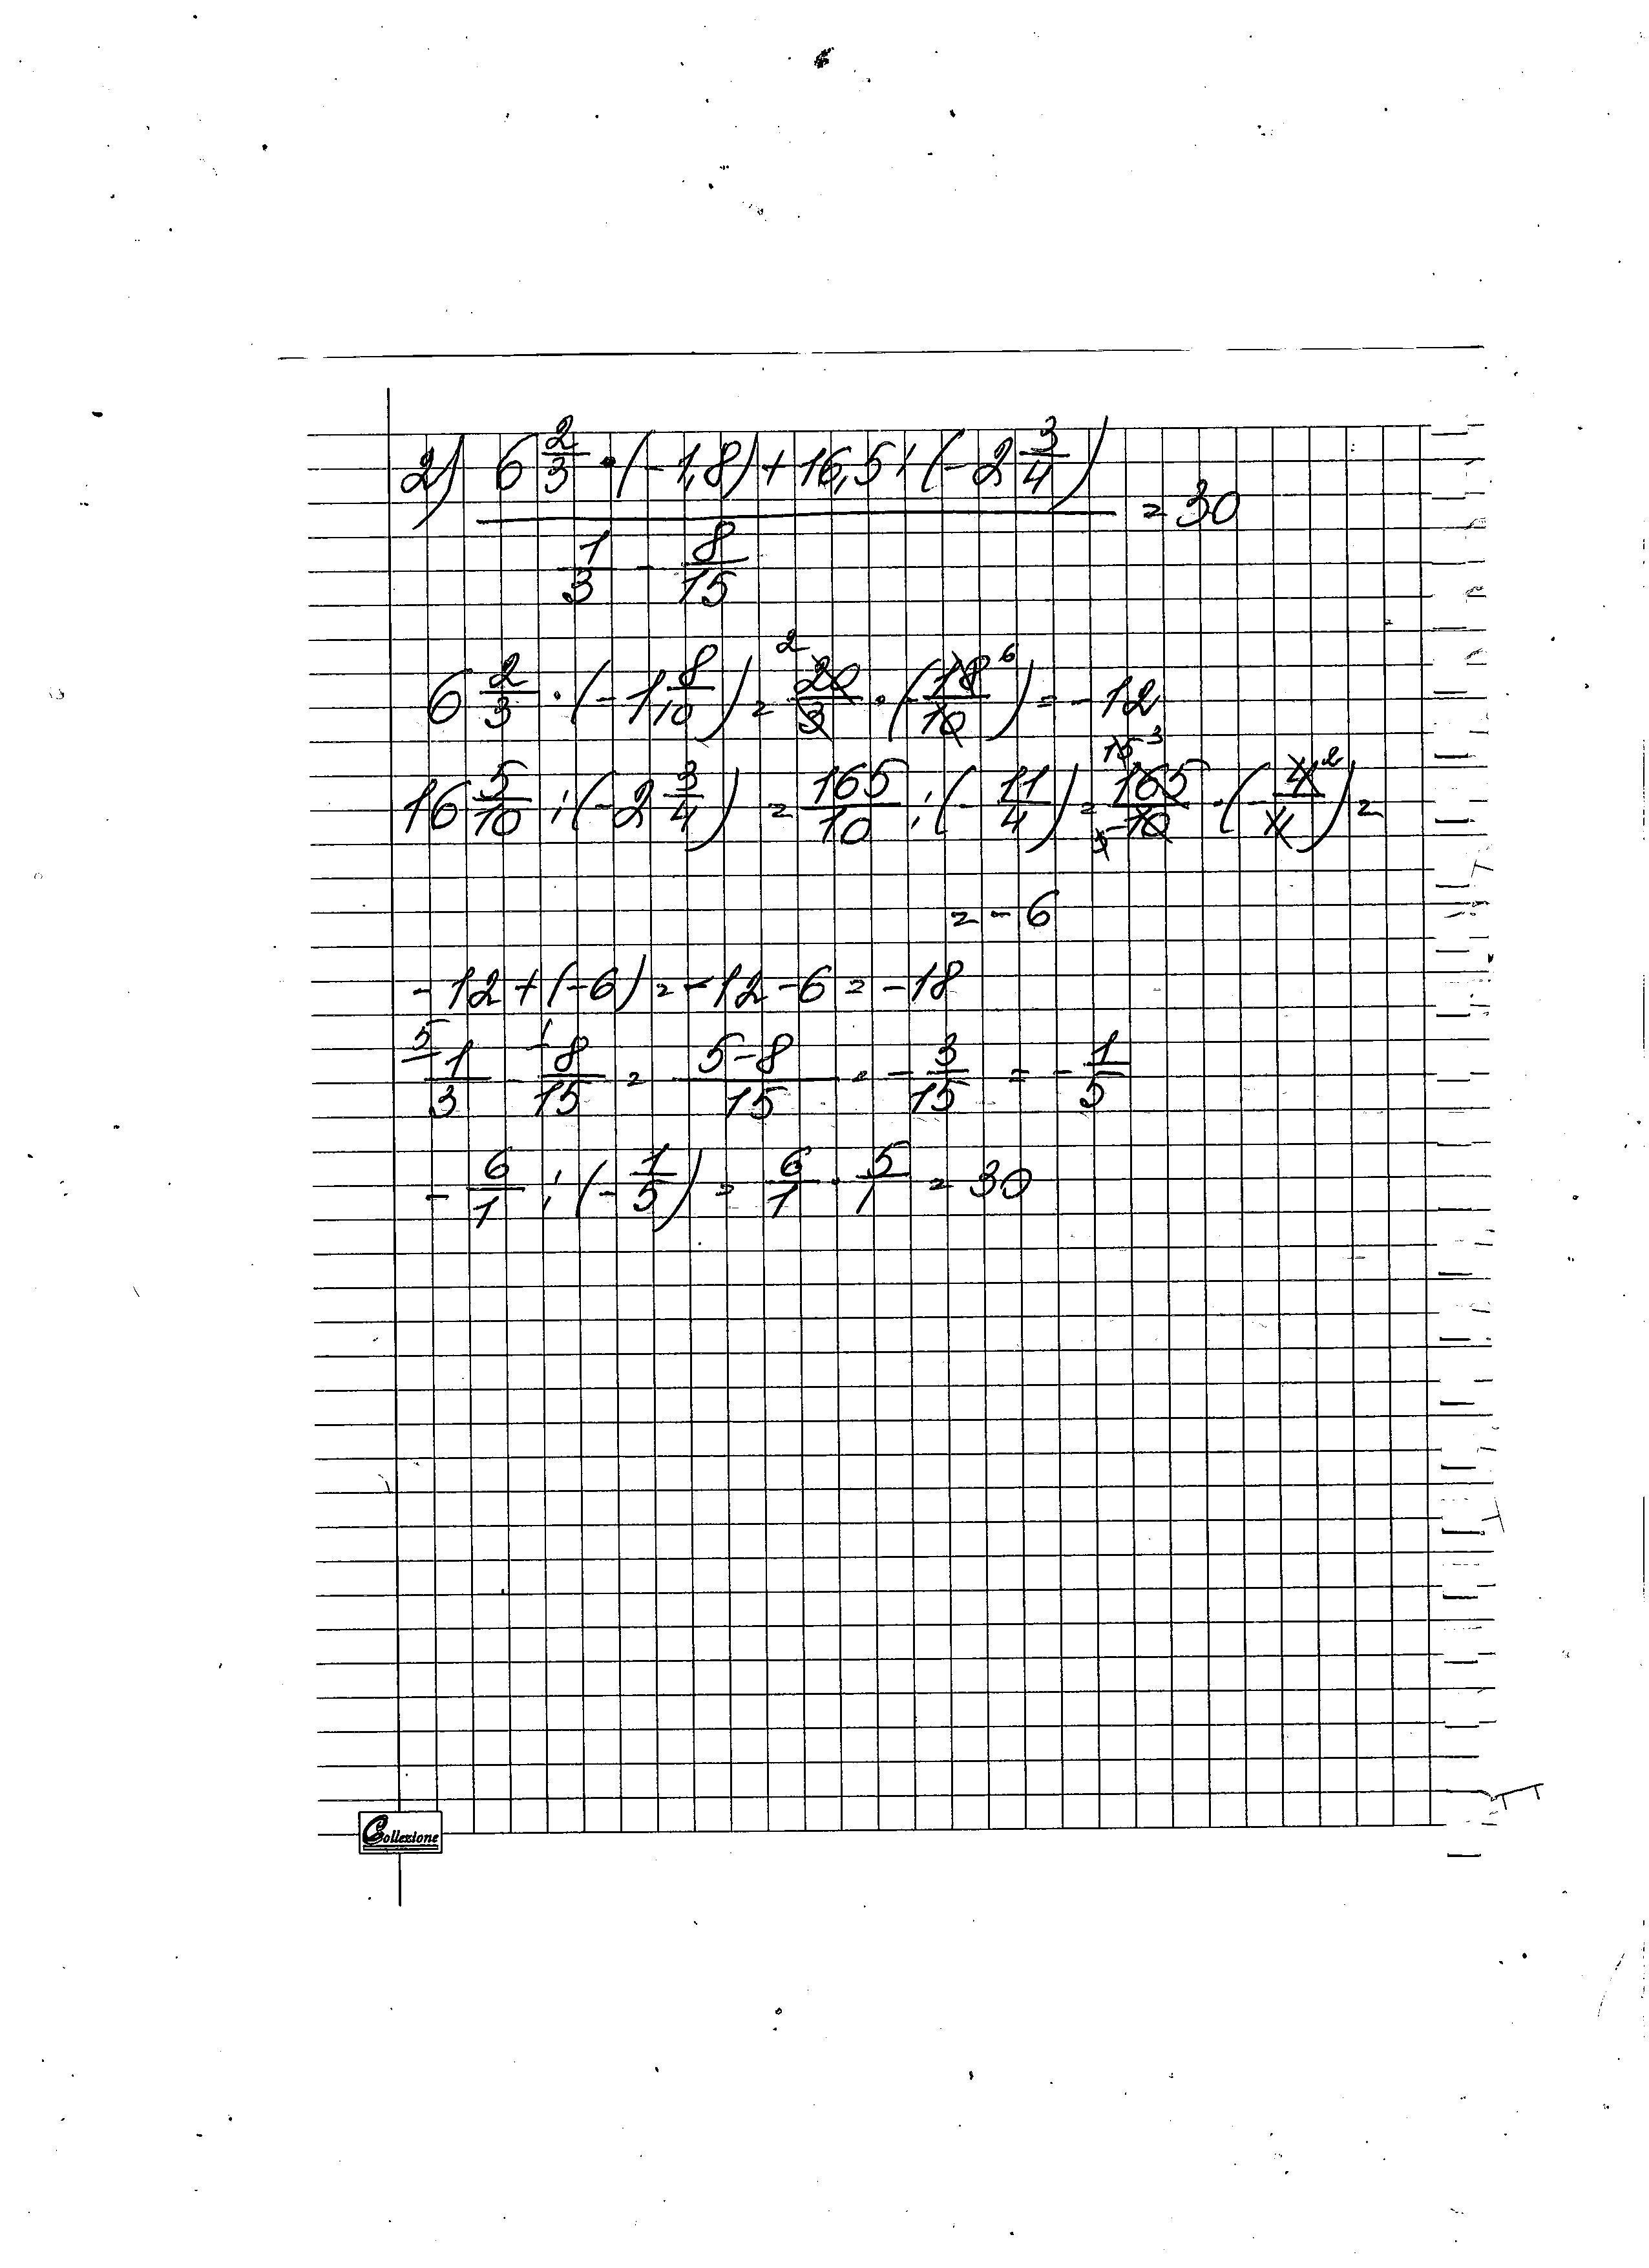 2) (6 2/3 · (-1,8) + 16,5 : (-2 3/4)) / (1/3 - 8/15) = 30
6 2/3 · (-1 8/10) = 2 20/3 · (-18/10) 6 = -12
16 5/10 : (-2 3/4) = 165/10 : (-11/4) = 15 3 165/10 · (-4/11) 2 =
= -6
-12 + (-6) = -12 - 6 = -18
5 1/3 - 1 8/15 = (5-8)/15 = -3/15 = -1/5
-6/1 : (-1/5) = 6/1 · 5/1 = 30
Collezione